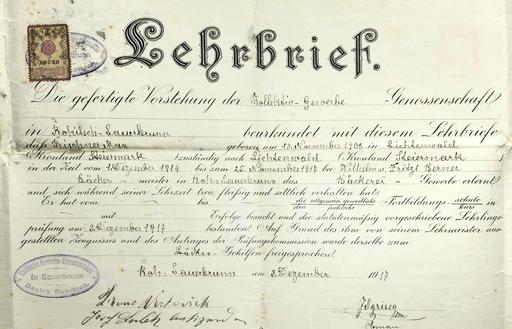 Lehrbrief.
Die gefertigte Vorstehung der Kollektiv-Gewerbe Genossenschaft
in Rohitsch-Sauerbrunn beurkundet mit diesem Lehrbriefe
daß Kirchner Max geboren am 13. November 1900 in Lichtenwald
Kronland Steiermark zuständig nach Lichtenwald Kronland Steiermark
in der Zeit vom 1. Dezember 1914 bis zum 25. November 1917 bei Wilhelm u. Fritzl Berner
Bäcker meister in Roh. Sauerbrunn das Bäckerei - Gewerbe erlernt
und sich während seiner Lehrzeit treu, fleißig und sittlich verhalten hat.
Er hat vom bis die allgemein gewerbliche Fortbildungs- schule
fachliche kurs
mit Erfolge besucht und die statutenmäßig vorgeschriebene Lehrlings-
prüfung am 3. Dezember 1917 bestanden. Auf Grund des ihm von seinem Lehrmeister aus-
gestellten Zeugnisses und des Antrages der Prüfungskommission wurde derselbe zum
Bäcker- Gehilfen freigesprochen.
Roh. Sauerbrunn am 3. Dezember 1917
in Sauerbrunn
Bezirk Rohitsch.